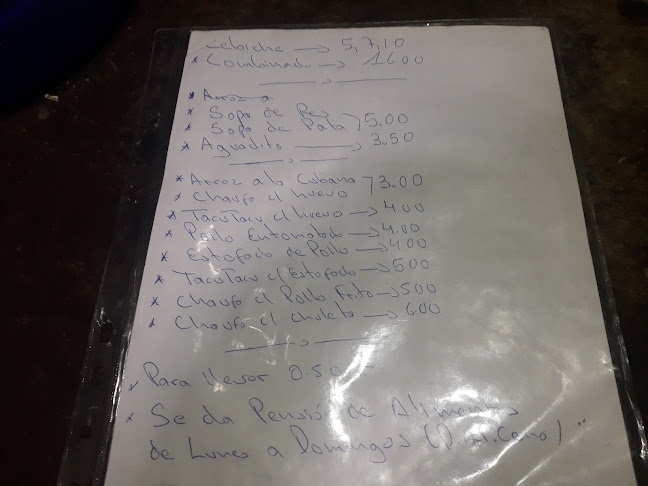 Cebiche → 5,7,10
* Combinado → 16.00
* Arroz a
* Sopa de Res
* Sopa de Pata 5.00
* Aguadito → 3.50
* Arroz a la Cubana 3.00
* Chaufa c/ huevo
* TacuTacu c/ huevo → 4.00
* Pollo Entomatado → 4.00
* Estofado de Pollo → 4.00
* TacuTacu c/ Estofado → 500
* Chaufa c/ Pollo Frito → 500
* Chaufa c/ chuleta → 6.00
* Para llevar 0.50
* Se da Pensión de Alimentos
de Lunes a Domingos